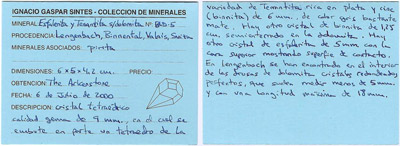 IGNACIO GASPAR SINTES - COLECCION DE MINERALES
MINERAL: Esfalerita y Tennantita s/dolomita Nº
PROCEDENCIA: Lengenbach, Binnental, Valais, Suiza
MINERALES ASOCIADOS: pirita
DIMENSIONES: 6 x 5 x 4,2 cm. PRECIO
OBTENCION: The Arkenstone
FECHA: 6 de Julio de 2000
DESCRIPCION: cristal tetraédrico
calidad gema de 9 mm., en el cual se
embute en parte un tetraedro de la
variedad de Tennantita rica en plata y cinc
(binnita) de 6 mm, de color gris bastante
mate. Hay otro cristal de binnita de
semienterrado en la dolomita. Hay
otro cristal de esfalerita de 5 mm con la
cara superior mostrando superficie de contacto.
En Lengenbach se han encontrado en el interior
de las drusas de dolomita cristales redondeados
perfectos, que suelen medir menos de 5 mm.
y con una longitud máxima de 18 mm.